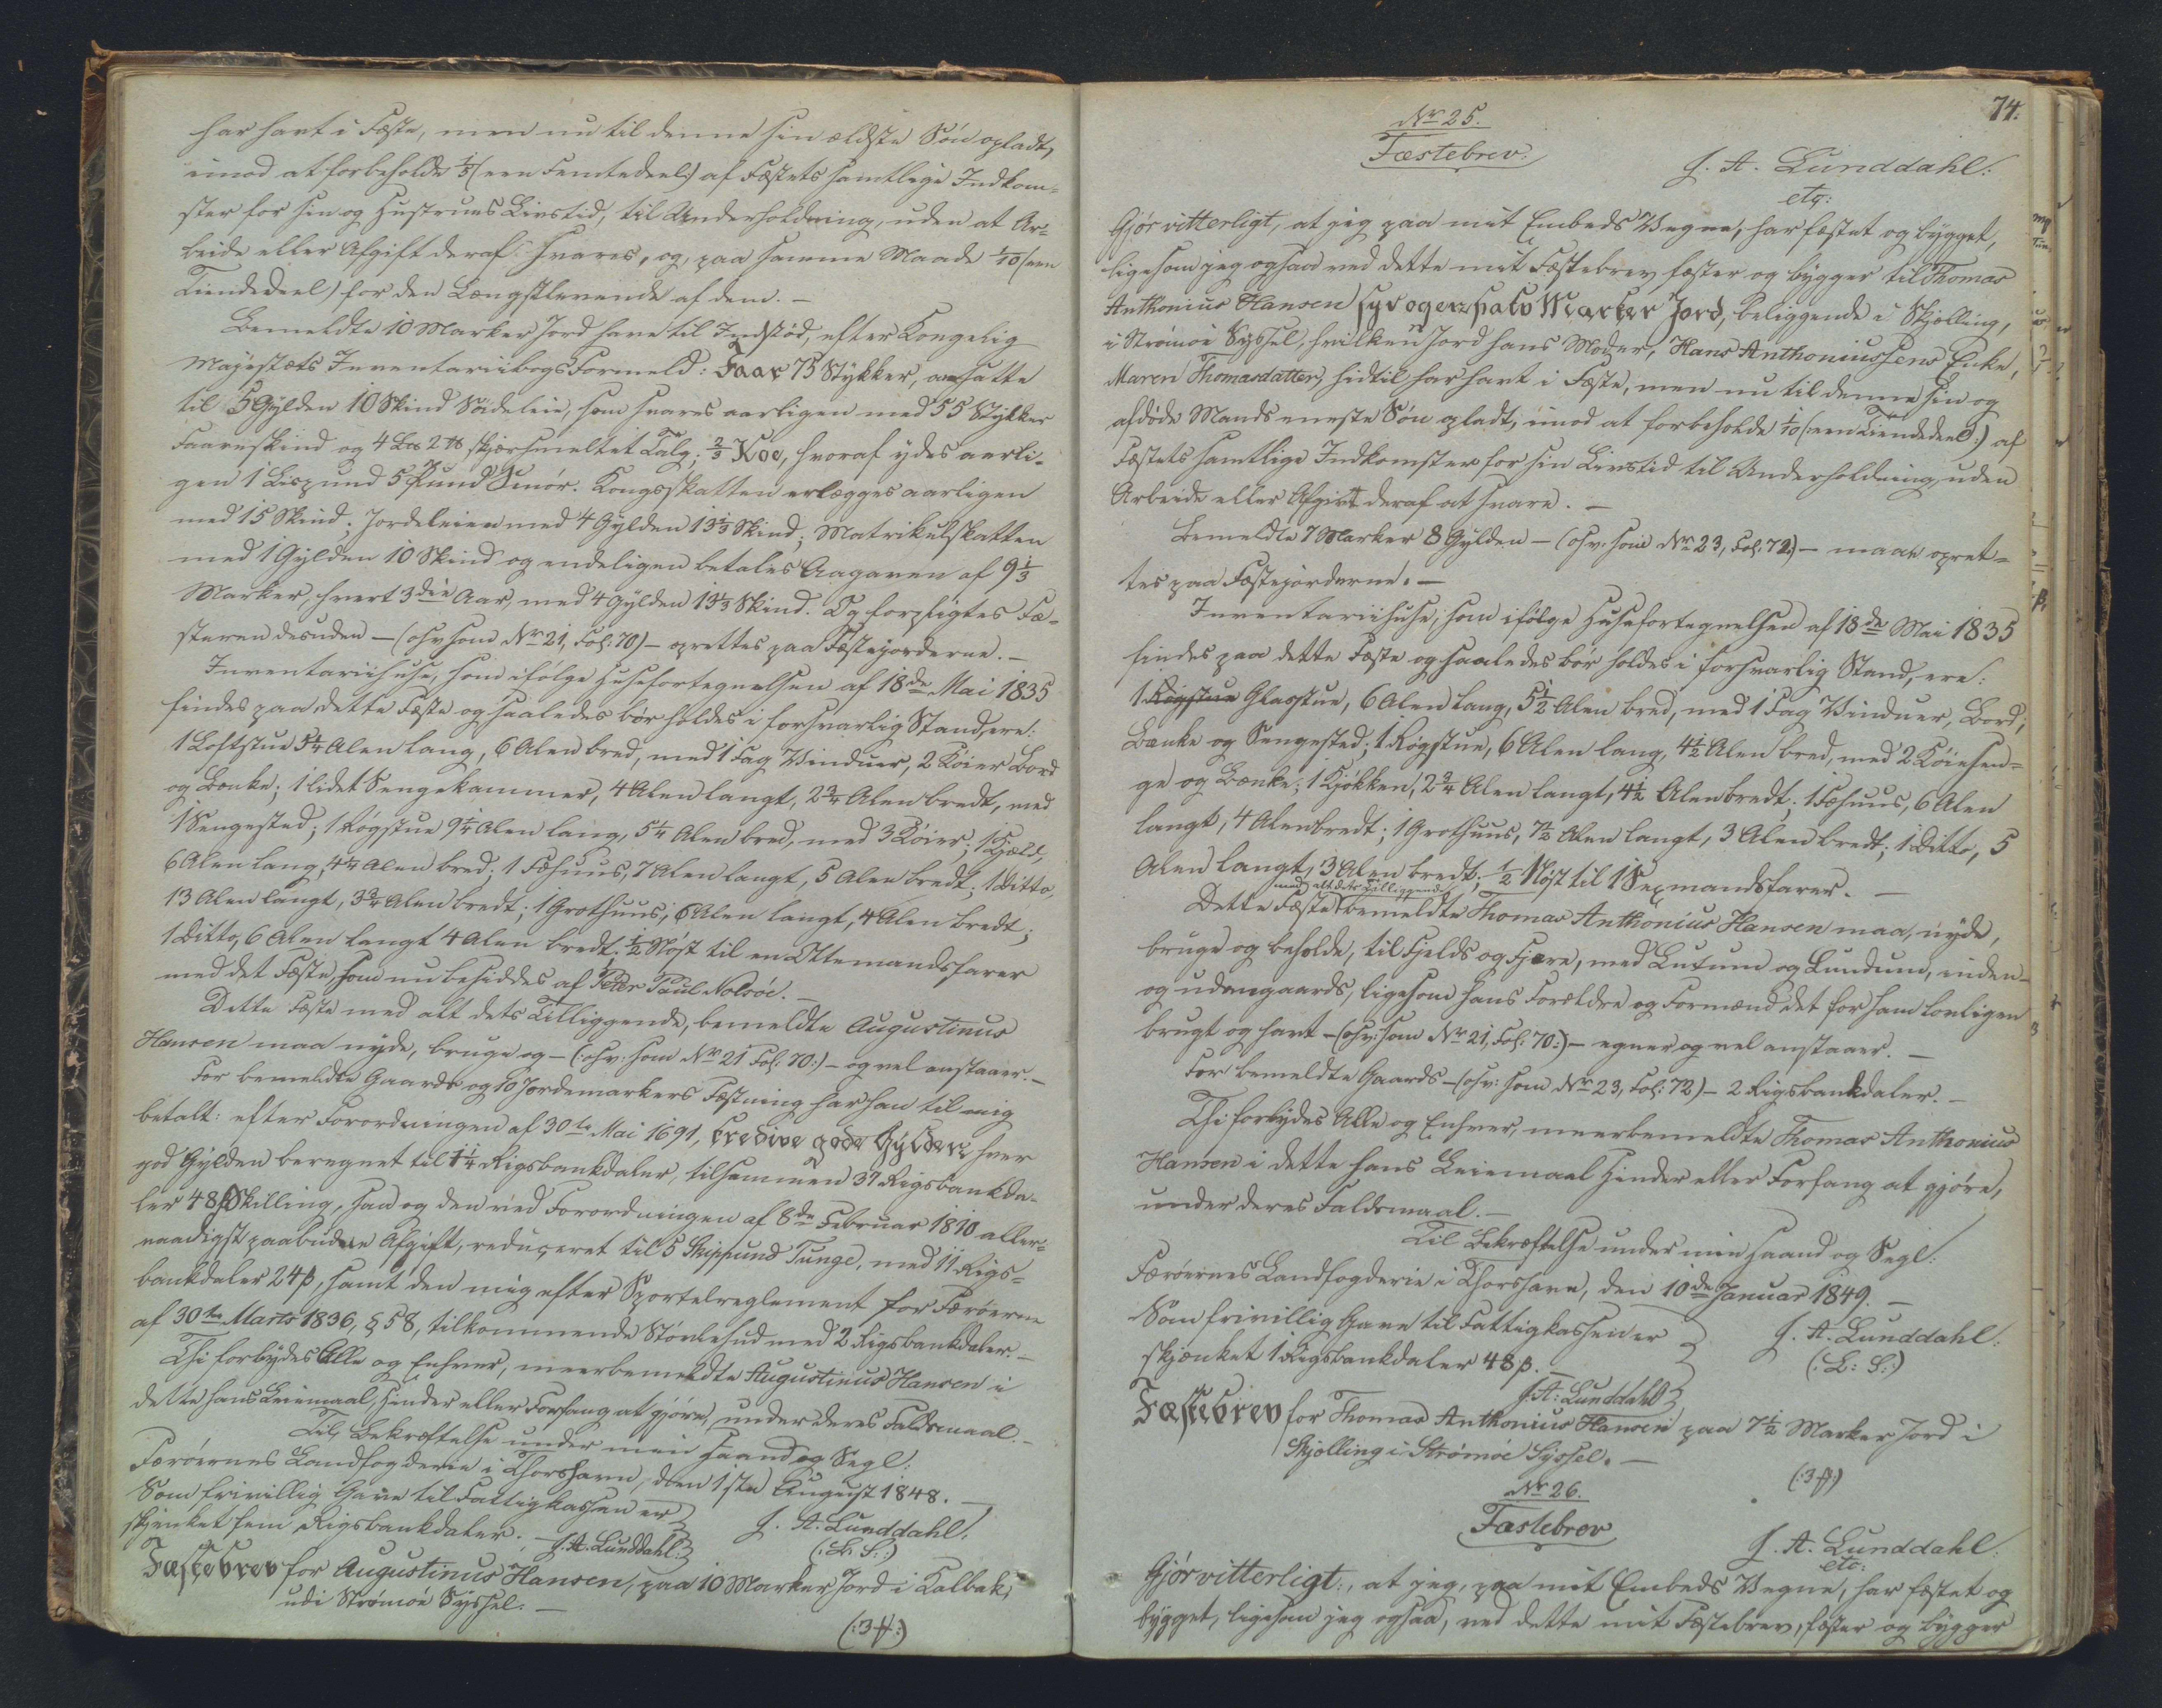 har havt i Fæste, men nu til denne sin ældste Søn opladt,
imod at forbeholde 1/5 (:een Femtedeel:) af Fæstets samtlige Indkom-
ster for sin og Hustrues Livstid, til Underholdning, uden at Ar-
beide eller Afgift deraf svares, og, paa samme Maade 1/10 (een
Tiendedeel) for den Længstlevende af dem. —
Bemeldte 10 Marker Jord have til Indstød, efter Kongelig
Majestæts Inventariibogs Formeld: Faar 73 Stykker, ansatte
til 5 Gylden 10 Skind Søideleie, som svares aarligen med 55 Stykker
Faareskind og 4 Lu 2 ℔ skjørsmeltet Talg; 2/3 Koe, hvoraf ydes aarli-
gen 1 Lispund 5 Pund Smør. Kongsskatten erlægges aarligen
med 15 Skind; Jordeleien med 4 Gylden 13 1/3 Skind; Matrikulskatten
med 1 Gylden 10 Skind og endeligen betales Aagaven af 9 1/3
Marker, hvert 3die Aar, med 4 Gylden 13 1/3 Skind. Og forpligtes Fæ-
steren desuden — (osv. som Nr 21, Fol: 70) — oprettes paa Fæstejorderne. —
Inventariihuse, som ifølge Husefortegnelsen af 18de Mai 1835
findes paa dette Fæste og saaledes bør holdes i forsvarlig Stand, ere:
1 Loftstue 5 1/4 Alen lang, 6 Alen bred, med 1 Fag Vinduer, 2 Køier Bord
og Bænke; 1 lidet Sengekammer, 4 Alen langt, 2 3/4 Alen bredt, med
1 Sengested; 1 Røgstue 9 1/4 Alen lang, 5 1/4 Alen bred, med 3 Køier; 1 Kjeld,
6 Alen lang, 4 1/4 Alen bred; 1 Fæhuus, 7 Alen langt, 5 Alen bredt; 1 Ditto,
13 Alen langt, 3 3/4 Alen bredt; 1 Grothuus, 6 Alen langt, 4 Alen bredt;
1 Ditto, 6 Alen langt 4 Alen bredt. 1/2 Nøst til en Ottemandsfarer
med det Fæste som nu besiddes af Peter Paul Nolsøe. —
Dette Fæste med alt dets Tilliggende, bemeldte Augustinus
Hansen maa nyde, bruge og — (: osv: som Nr 21 Fol: 70:) — og vel anstaaer. —
For bemeldte Gaards og 10 Jordemarkers Fæstning har han til mig
betalt: efter Forordningen af 30te Mai 1691, tredive gode Gylden hver
god Gylden beregnet til 1 1/4 Rigsbankdaler, tilsammen 37 Rigsbankda-
ler 48 Skilling, saa og den ved Forordningen af 8de Februar 1810 aller-
naadigst paabudne Afgift, reduceret til 5 Skippund Tunge, med 11 Rigs-
bankdaler 24 β, samt den mig efter Sportelreglement for Færøerne
af 30te Marts 1836, § 58, tilkommende Støvlehud med 2 Rigsbankdaler. —
Thi forbydes Alle og Enhver, meerbemeldte Augustinus Hansen i
dette hans Leiemaal, Hinder eller Forfang at gjøre, under deres Faldsmaal. —
Til Bekræftelse under min Haand og Segl:
Færøernes Landfogderie i Thorshavn, den 1ste August 1848. —
Som frivillig Gave til Fattigkassen er
skjenket fem Rigsbankdaler. — J. A. Lunddahl:
J. A. Lunddahl:
(: L: S: :)
Fæstebrev for Augustinus Hansen, paa 10 Marker Jord i Kalbak,
udi Strømøe Syssel. —
(:3 f:)
74.
Nr 25.
Fæstebrev:
J. A. Lunddahl:
etc:
Gjør vitterligt, at jeg paa mit Embeds Vegne, har fæstet og bygget,
ligesom jeg ogsaa ved dette mit Fæstebrev fæster og bygger til Thomas
Anthonius Hansen syv og en halv Marker Jord, beliggende i Skjelling,
i Strømøe Syssel, hvilken Jord hans Moder, Hans Anthoniussens Enke,
Maren Thomasdatter, hidtil har havt i Fæste, men nu til denne sin og
afdøde Mands eneste Søn opladt, imod at forbeholde 1/10 (: een Tiendedeel:) af
Fæstets samtlige Indkomster for sin Livstid til Underholdning, uden
Arbeide eller Afgivt deraf at svare. —
Bemeldte 7 Marker 8 Gylden — (osv: som Nr 23, Fol: 72) — maae opret-
tes paa Fæstejorderne. —
Inventariihuse, som ifølge Husefortegnelsen af 18de Mai 1835
findes paa dette Fæste og saaledes bør holdes i forsvarlig Stand, ere:
1 Røgstue Glasstue, 6 Alen lang, 5 1/2 Alen bred, med 1 Fag Vinduer, Bord,
Bænke og Sengested; 1 Røgstue, 6 Alen lang, 4 1/2 Alen bred, med 2 Køiesen-
ge og Bænke; 1 Kjøkken, 2 3/4 Alen langt, 4 1/2 Alen bredt; 1 Fæhuus, 6 Alen
langt, 4 Alen bredt; 1 Grothuus, 7 1/2 Alen langt, 3 Alen bredt; 1 Ditto, 5
Alen langt, 3 Alen bredt; 1/2 Nøst til 1 Sexmandsfarer. —
med alt dets Tilliggende
Dette Fæste bemeldte Thomas Anthonius Hansen maa, nyde,
bruge og beholde, til Fjelds og Fjære, med Lutum og Lundum, inden-
og udengaards, ligesom hans Forældre og Formænd det før ham lovligen
brugt og havt — (osv: som Nr 21, Fol: 70:) — egner og vel anstaaer. —
For bemeldte Gaards — (osv: som Nr 23, Fol: 72) — 2 Rigsbankdaler. —
Thi forbydes Alle og Enhver, meerbemeldte Thomas Anthonius
Hansen i dette hans Leiemaal Hinder eller Forfang at gjøre,
under deres Faldsmaal. —
Til Bekræftelse under min Haand og Segl:
Færøernes Landfogderie i Thorshavn, den 10de Januar 1849. —
Som frivillig Gave til Fattigkassen er
skjænket 1 Rigsbankdaler 48 β. —
J. A: Lunddahl
J. A. Lunddahl:
(: L: S: :)
Fæstebrev for Thomas Anthonius Hansen paa 7 1/2 Marker Jord i
Skjelling i Strømøe Syssel. —
(:3 f:)
Nr 26.
Fæstebrev
J. A. Lunddahl:
etc:
Gjør vitterligt:, at jeg, paa mit Embeds Vegne, har fæstet og
bygget, ligesom jeg ogsaa, ved dette mit Fæstebrev, fæster og bygger